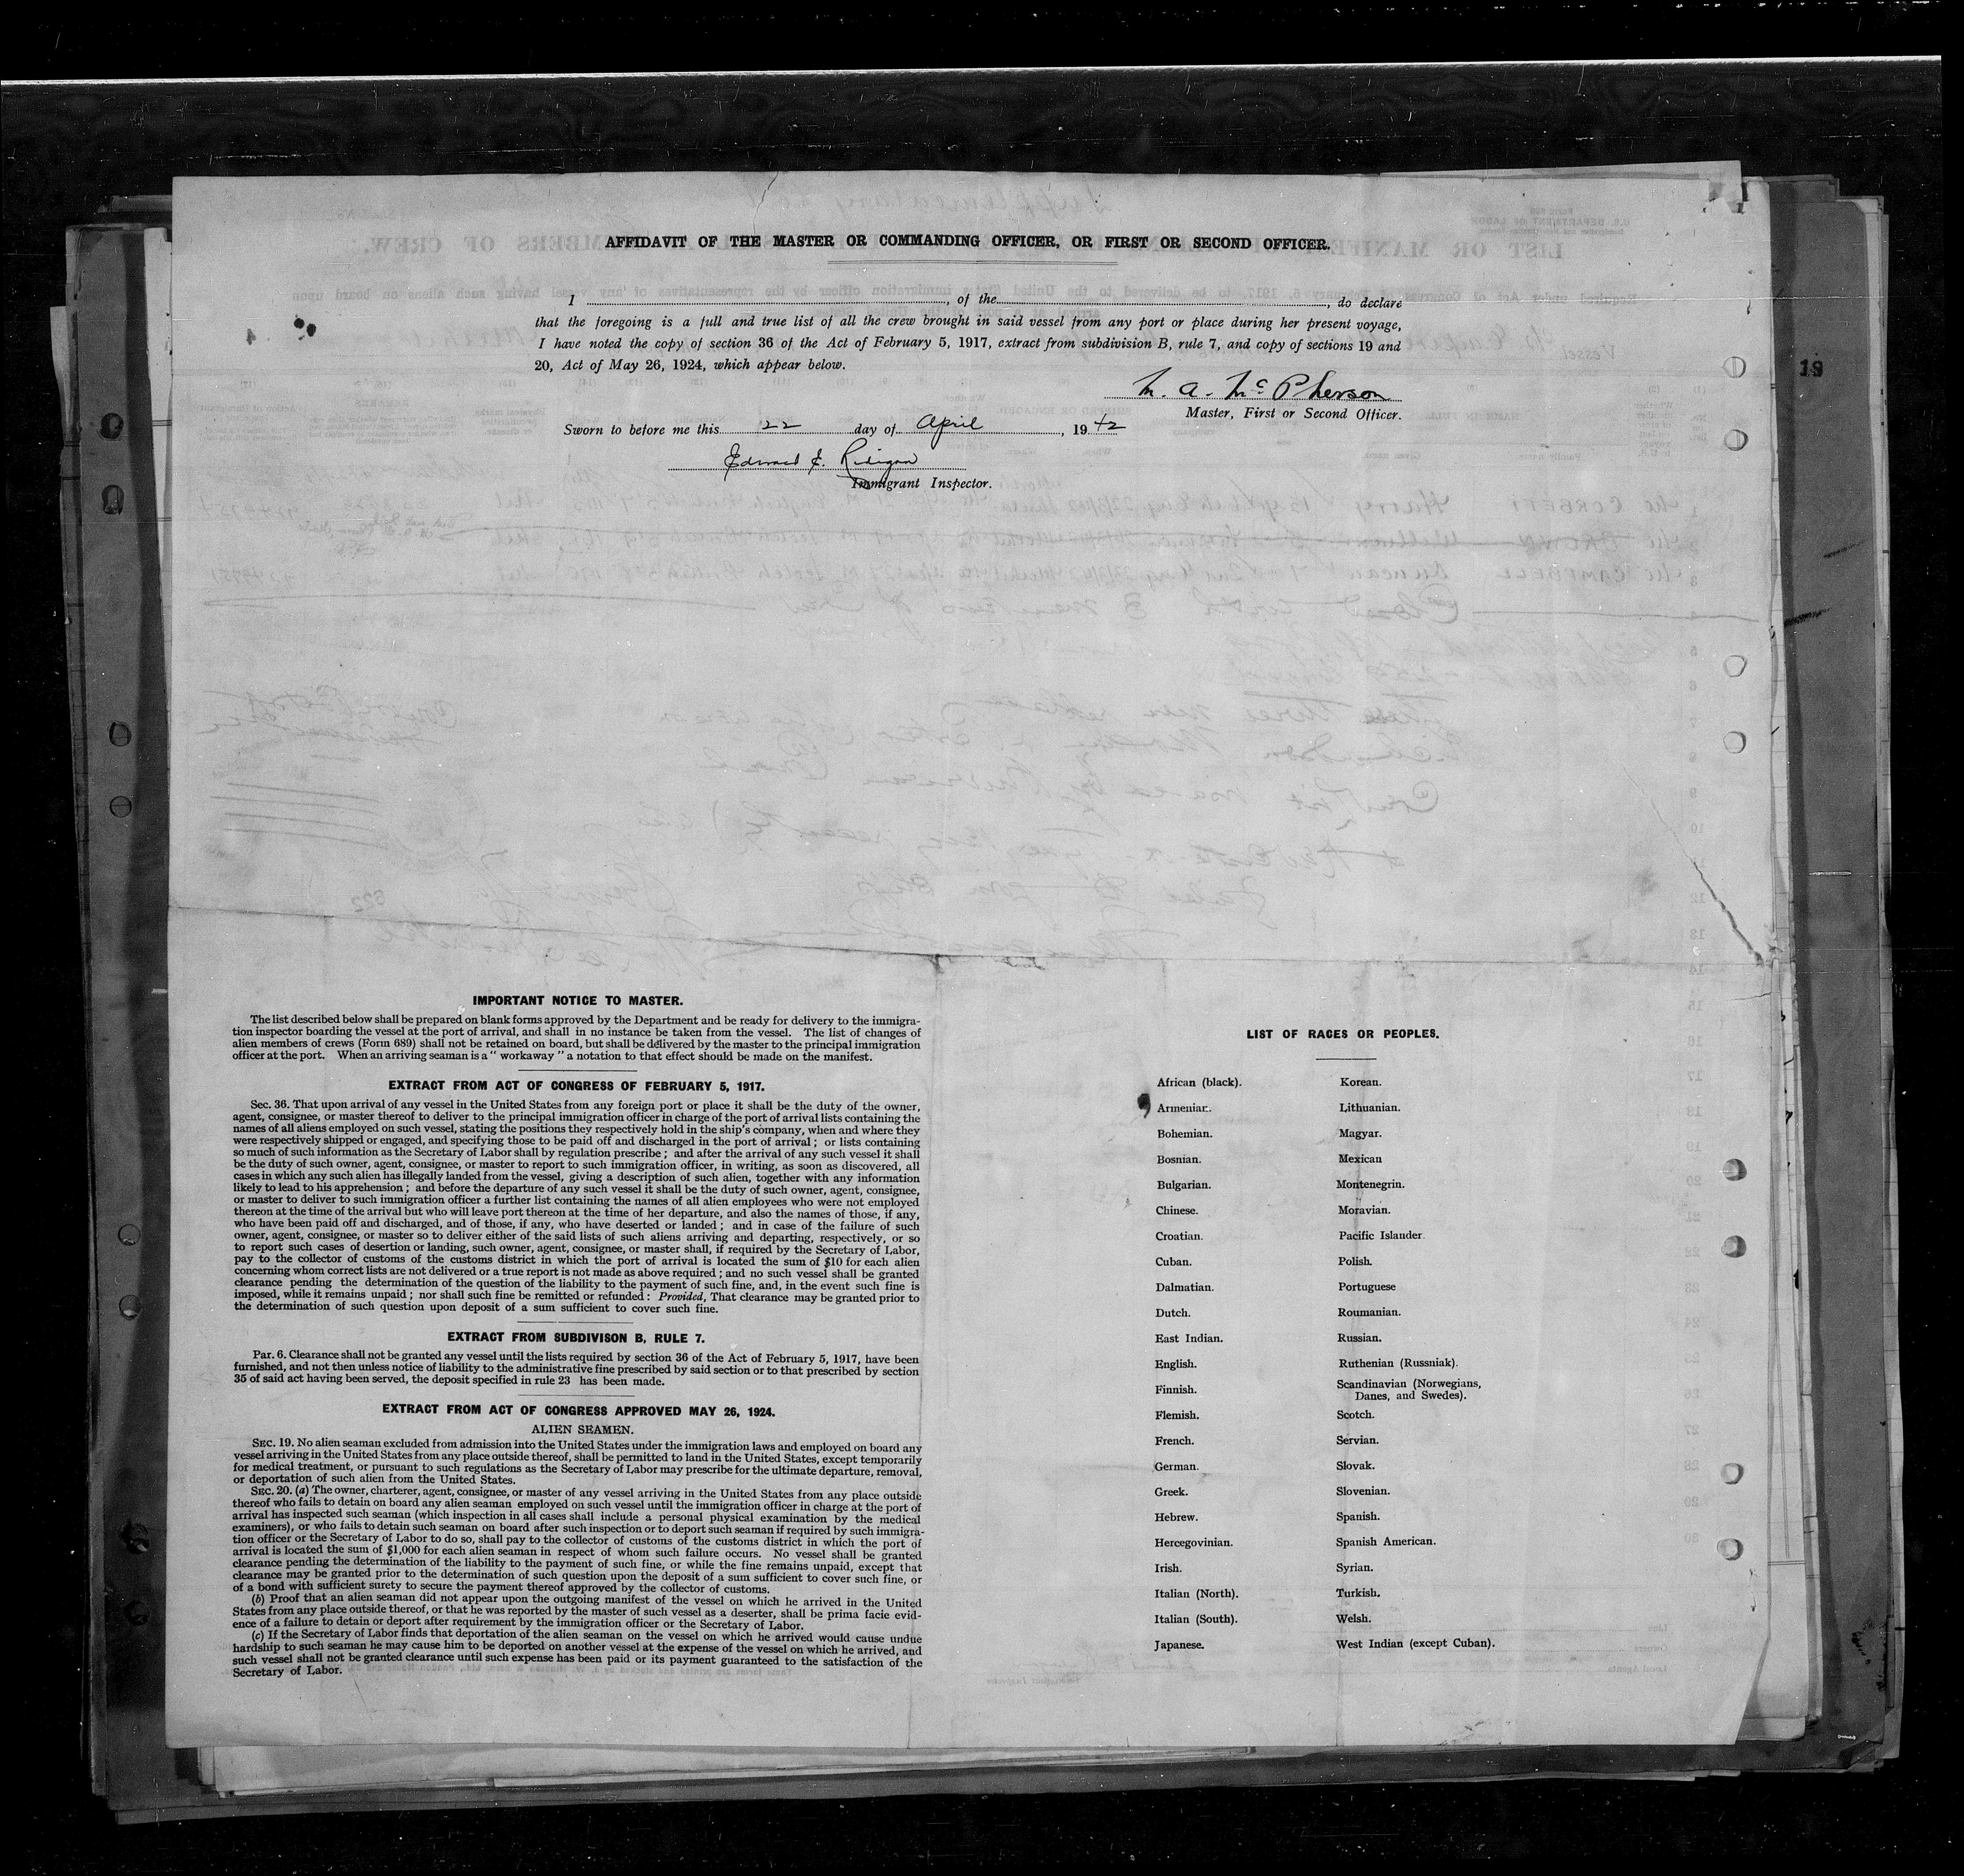 AFFIDAVIT OF THE MASTER OR COMMANDING OFFICER, OR FIRST OR SECOND OFFICER.
I , of the , do declare
that the foregoing is a full and true list of all the crew brought in said vessel from any port or place during her present voyage,
I have noted the copy of section 36 of the Act of February 5, 1917, extract from subdivision B, rule 7, and copy of sections 19 and
20, Act of May 26, 1924, which appear below.
M. A. McPherson
Master, First or Second Officer.
Sworn to before me this 22 day of April , 1942
Edward E.
Immigrant Inspector.
19
IMPORTANT NOTICE TO MASTER.
The list described below shall be prepared on blank forms approved by the Department and be ready for delivery to the immigra-
tion inspector boarding the vessel at the port of arrival, and shall in no instance be taken from the vessel. The list of changes of
alien members of crews (Form 689) shall not be retained on board, but shall be delivered by the master to the principal immigration
officer at the port. When an arriving seaman is a "workaway" a notation to that effect should be made on the manifest.
EXTRACT FROM ACT OF CONGRESS OF FEBRUARY 5, 1917.
Sec. 36. That upon arrival of any vessel in the United States from any foreign port or place it shall be the duty of the owner,
agent, consignee, or master thereof to deliver to the principal immigration officer in charge of the port of arrival lists containing the
names of all aliens employed on such vessel, stating the positions they respectively hold in the ship's company, when and where they
were respectively shipped or engaged, and specifying those to be paid off and discharged in the port of arrival; or lists containing
so much of such information as the Secretary of Labor shall by regulation prescribe; and after the arrival of any such vessel it shall
be the duty of such owner, agent, consignee, or master to report to such immigration officer, in writing, as soon as discovered, all
cases in which any such alien has illegally landed from the vessel, giving a description of such alien, together with any information
likely to lead to his apprehension; and before the departure of any such vessel it shall be the duty of such owner, agent, consignee,
or master to deliver to such immigration officer a further list containing the names of all alien employees who were not employed
thereon at the time of the arrival but who will leave port thereon at the time of her departure, and also the names of those, if any,
who have been paid off and discharged, and of those, if any, who have deserted or landed; and in case of the failure of such
owner, agent, consignee, or master so to deliver either of the said lists of such aliens arriving and departing, respectively, or so
to report such cases of desertion or landing, such owner, agent, consignee, or master shall, if required by the Secretary of Labor,
pay to the collector of customs of the customs district in which the port of arrival is located the sum of $10 for each alien
concerning whom correct lists are not delivered or a true report is not made as above required; and no such vessel shall be granted
clearance pending the determination of the question of the liability to the payment of such fine, and, in the event such fine is
imposed, while it remains unpaid; nor shall such fine be remitted or refunded: Provided, That clearance may be granted prior to
the determination of such question upon deposit of a sum sufficient to cover such fine.
EXTRACT FROM SUBDIVISON B, RULE 7.
Par. 6. Clearance shall not be granted any vessel until the lists required by section 36 of the Act of February 5, 1917, have been
furnished, and not then unless notice of liability to the administrative fine prescribed by said section or to that prescribed by section
35 of said act having been served, the deposit specified in rule 23 has been made.
EXTRACT FROM ACT OF CONGRESS APPROVED MAY 26, 1924.
ALIEN SEAMEN.
SEC. 19. No alien seaman excluded from admission into the United States under the immigration laws and employed on board any
vessel arriving in the United States from any place outside thereof, shall be permitted to land in the United States, except temporarily
for medical treatment, or pursuant to such regulations as the Secretary of Labor may prescribe for the ultimate departure, removal,
or deportation of such alien from the United States.
SEC. 20. (a) The owner, charterer, agent, consignee, or master of any vessel arriving in the United States from any place outside
thereof who fails to detain on board any alien seaman employed on such vessel until the immigration officer in charge at the port of
arrival has inspected such seaman (which inspection in all cases shall include a personal physical examination by the medical
examiners), or who fails to detain such seaman on board after such inspection or to deport such seaman if required by such immigra-
tion officer or the Secretary of Labor to do so, shall pay to the collector of customs of the customs district in which the port of
arrival is located the sum of $1,000 for each alien seaman in respect of whom such failure occurs. No vessel shall be granted
clearance pending the determination of the liability to the payment of such fine, or while the fine remains unpaid, except that
clearance may be granted prior to the determination of such question upon the deposit of a sum sufficient to cover such fine, or
of a bond with sufficient surety to secure the payment thereof approved by the collector of customs.
(b) Proof that an alien seaman did not appear upon the outgoing manifest of the vessel on which he arrived in the United
States from any place outside thereof, or that he was reported by the master of such vessel as a deserter, shall be prima facie evid-
ence of a failure to detain or deport after requirement by the immigration officer or the Secretary of Labor.
(c) If the Secretary of Labor finds that deportation of the alien seaman on the vessel on which he arrived would cause undue
hardship to such seaman he may cause him to be deported on another vessel at the expense of the vessel on which he arrived, and
such vessel shall not be granted clearance until such expense has been paid or its payment guaranteed to the satisfaction of the
Secretary of Labor.
LIST OF RACES OR PEOPLES.
African (black).
Armenian.
Bohemian.
Bosnian.
Bulgarian.
Chinese.
Croatian.
Cuban.
Dalmatian.
Dutch.
East Indian.
English.
Finnish.
Flemish.
French.
German.
Greek.
Hebrew.
Hercegovinian.
Irish.
Italian (North).
Italian (South).
Japanese.
Korean.
Lithuanian.
Magyar.
Mexican
Montenegrin.
Moravian.
Pacific Islander.
Polish.
Portuguese
Roumanian.
Russian.
Ruthenian (Russniak).
Scandinavian (Norwegians,
Danes, and Swedes).
Scotch.
Servian.
Slovak.
Slovenian.
Spanish.
Spanish American.
Syrian.
Turkish.
Welsh.
West Indian (except Cuban).